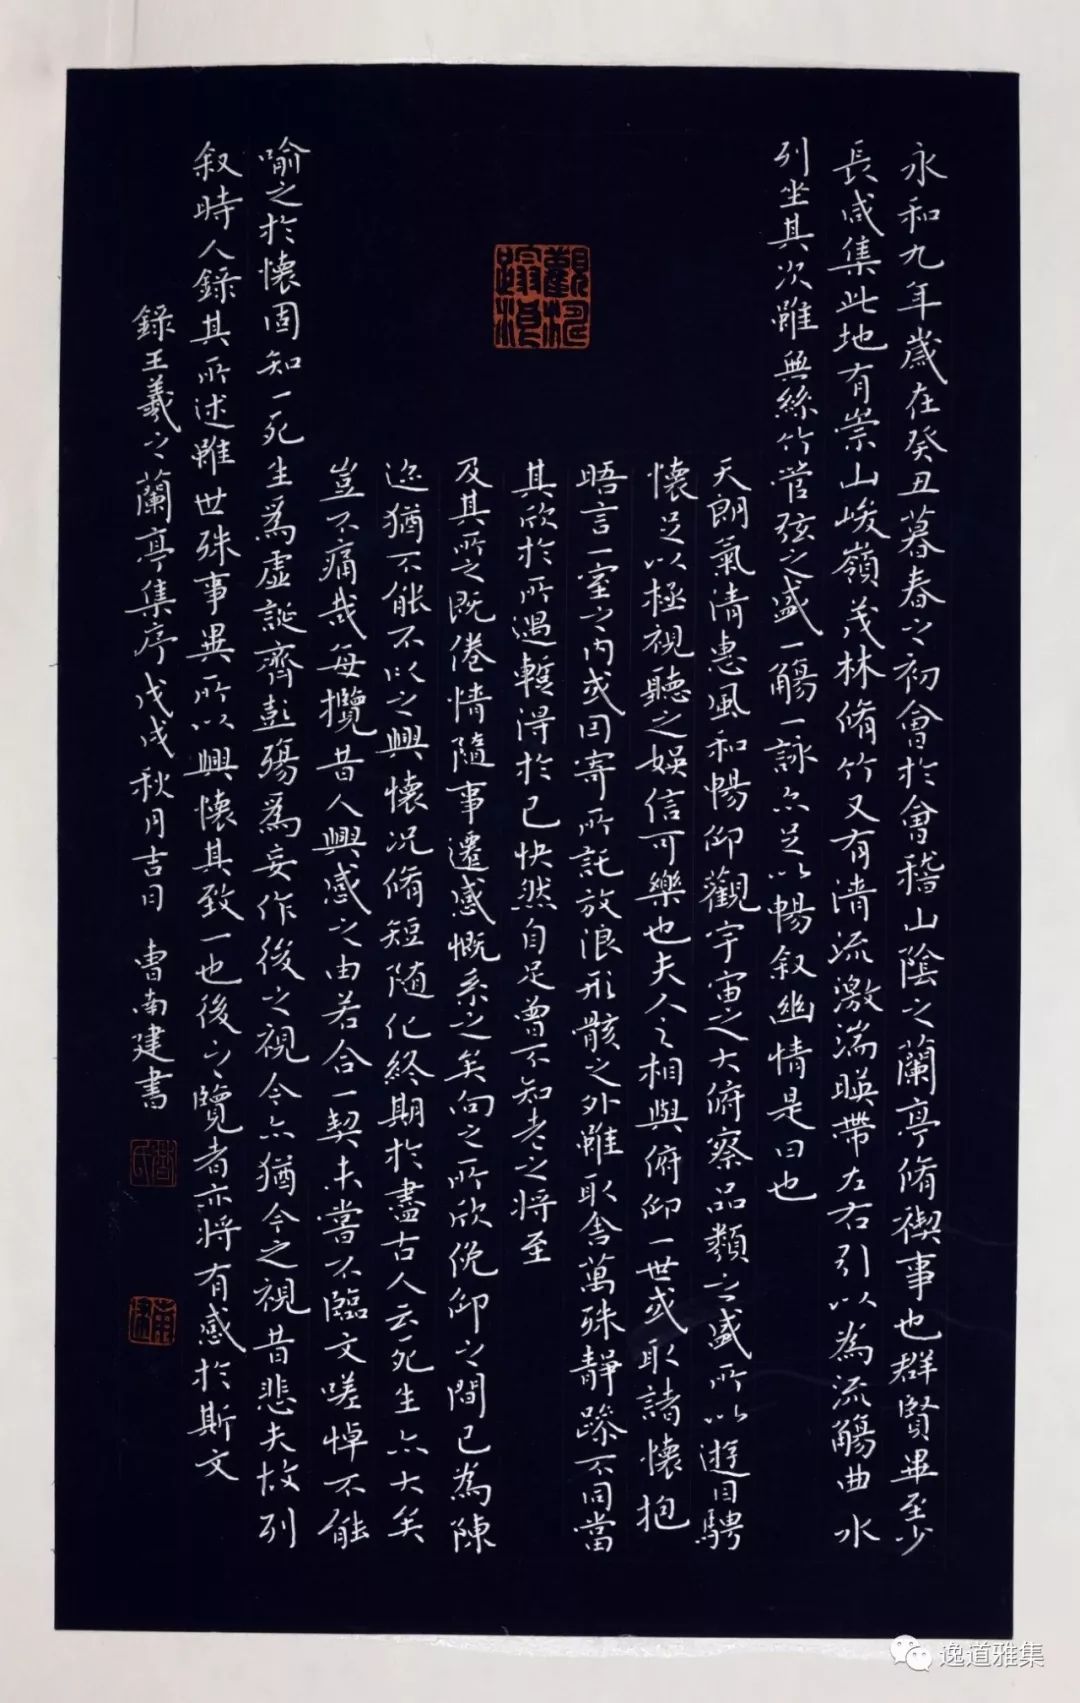 永和九年歲在癸丑暮春之初會於會稽山陰之蘭亭脩禊事也群賢畢至少
長咸集此地有崇山峻嶺茂林脩竹又有清流激湍暎帶左右引以為流觴曲水
列坐其次雖無絲竹管弦之盛一觴一詠亦足以暢叙幽情是日也
天朗氣清惠風和暢仰觀宇宙之大俯察品類之盛所以遊目騁
懷足以極視聽之娛信可樂也夫人之相與俯仰一世或取諸懷抱
晤言一室之內或因寄所託放浪形骸之外雖取舍萬殊靜躁不同當
其欣於所遇暫得於己快然自足曾不知老之將至
及其所之既倦情隨事遷感慨系之矣向之所欣俛仰之間已為陳
迹猶不能不以之興懷況脩短隨化終期於盡古人云死生亦大矣
豈不痛哉每攬昔人興感之由若合一契未嘗不臨文嗟悼不能
喻之於懷固知一死生為虛誕齊彭殤為妄作後之視今亦猶今之視昔悲夫故列
叙時人錄其所述雖世殊事異所以興懷其致一也後之覽者亦將有感於斯文
錄王羲之蘭亭集序戊戌秋月吉日 曹南建書
逸道雅集